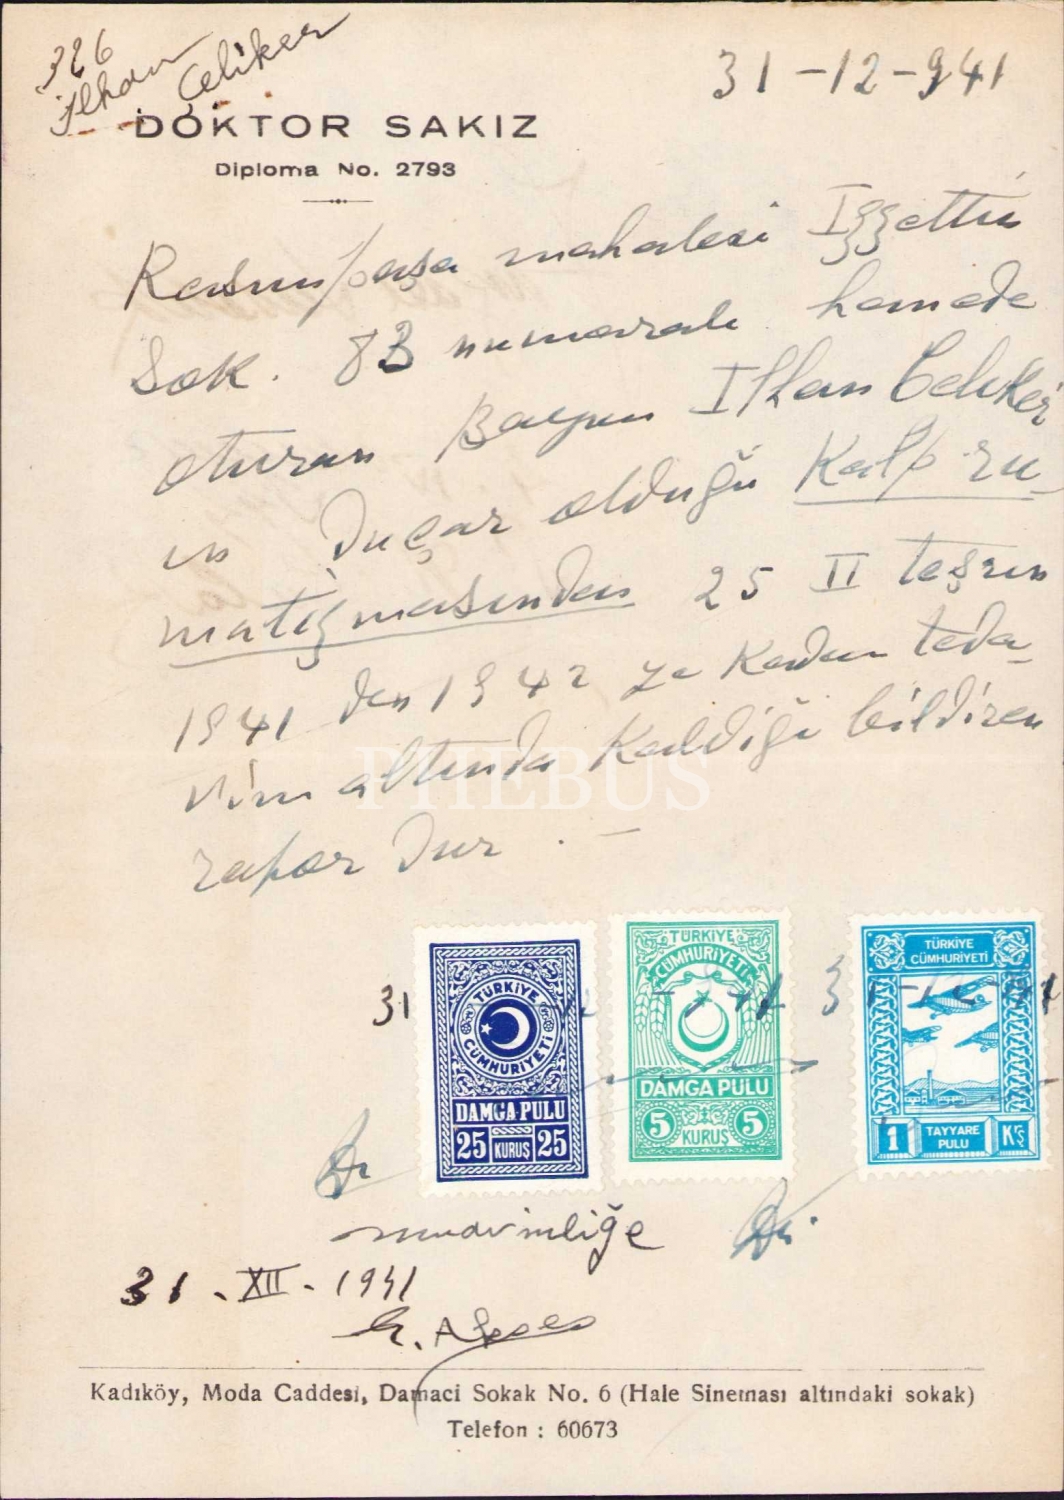 326
İlhan Çeliker
31-12-941
DOKTOR SAKIZ
Diploma No. 2793
Rasimpaşa mahalesi Izzettin
Sok. 83 numaralı hanede
oturan Bayan Ilhan Celiker
in Duçar olduğu Kalp ru-
matizmasından 25 II teşrin
1941 den 1942 ye kadar teda-
vim altında kaldığı bildiren
rapor dur . —
PHEBUS
31
TÜRKİYE CÜMHURİYETİ
DAMGA PULU
25 KURUŞ 25
TÜRKİYE
CÜMHURİYETİ
DAMGA PULU
5 KURUŞ 5
TÜRKİYE
CÜMHURİYETİ
1 TAYYARE PULU Krş
Dr
muavinliğe
Dr.
31 . XII . 1941
Kadıköy, Moda Caddesi, Damaci Sokak No. 6 (Hale Sineması altındaki sokak)
Telefon : 60673